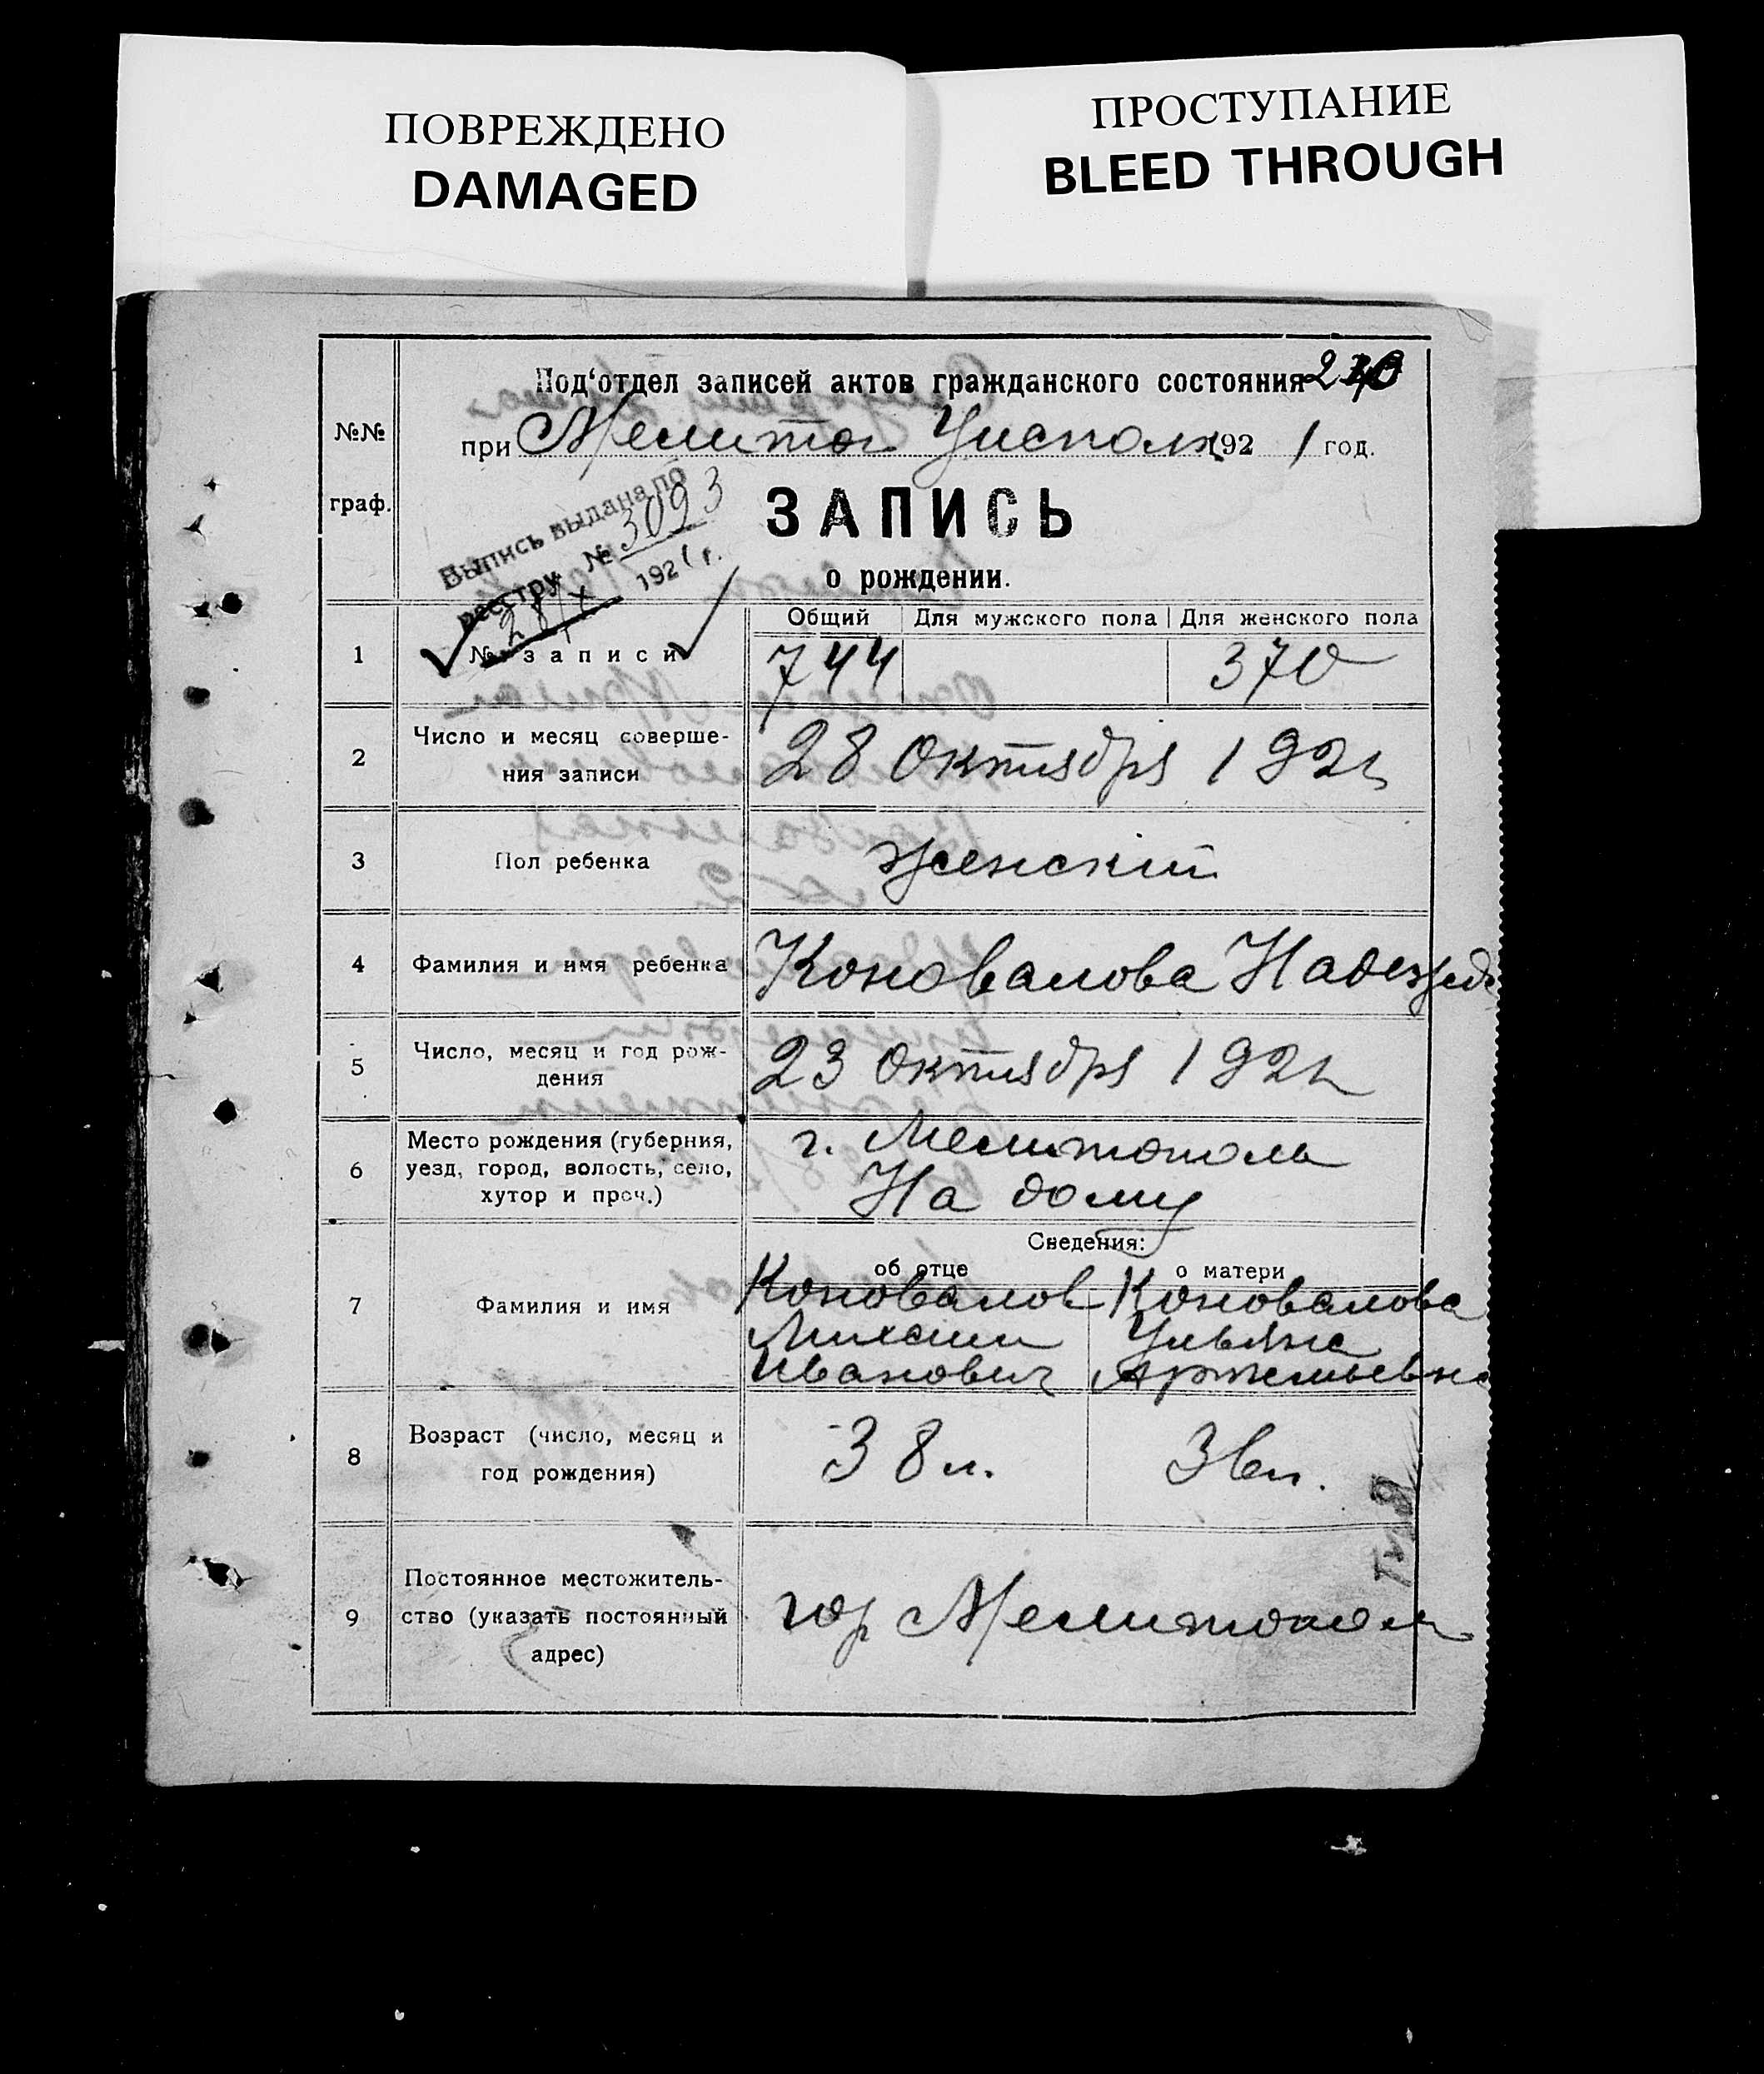 ПОВРЕЖДЕНО
DAMAGED
ПРОСТУПАНИЕ
BLEED THROUGH
№№
граф.
Под‘отдел записей актов гражданского состояния
при Мелитоп Уисполк 1921 год.
Выпись выдана по
реестру № 3093
28/X 1921 г.
ЗАПИСЬ
о рождении.
Общий Для мужского пола Для женского пола
1 № записи 744 370
2 Число и месяц соверше-
ния записи
28 Октября 1921
3 Пол ребенка женский
4 Фамилия и имя ребенка Коновалова Надежда
5 Число, месяц и год рож-
дения
23 Октября 1921
6 Место рождения (губерния,
уезд, город, волость, село,
хутор и проч.)
г. Мелитополь
На дому
Сведения:
об отце о матери
7 Фамилия и имя
Коновалов Коновалова
Михаил Ульяна
Иванович Артемьевна
8 Возраст (число, месяц и
год рождения)
38 л. 36 л.
9 Постоянное местожитель-
ство (указать постоянный
адрес)
гор Мелитополь